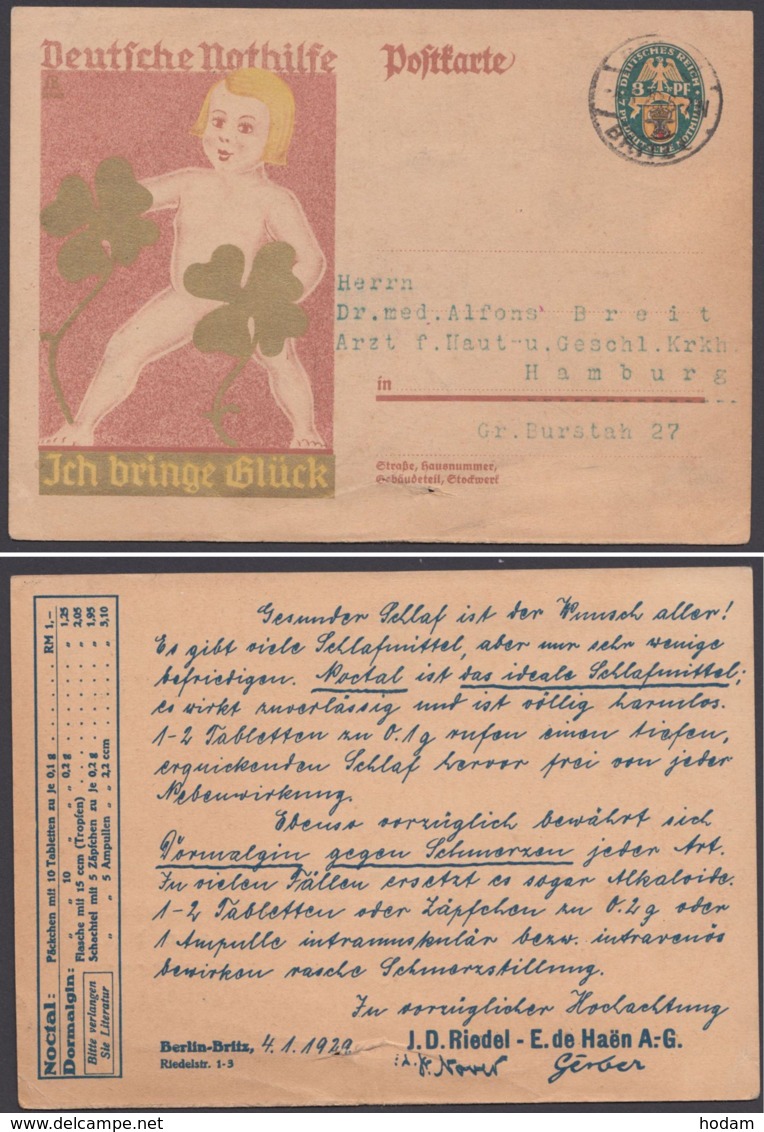 Deutsche Nothilfe
Postkarte
DEUTSCHES REICH
8 PF
BRITZ
Herrn
Dr.med.Alfons Breit
Arzt f.Haut-u.Geschl.Krkh.
in Hamburg
Gr.Burstah 27
Ich bringe Glück
Straße, Hausnummer,
Gebäudeteil, Stockwerk
Noctal: Päckchen mit 10 Tabletten zu je 0,1 g . . . . . . RM 1,—
Dormalgin: „ „ 10 „ „ „ 0,2 g . . . . . . „ 1,25
Flasche mit 15 ccm (Tropfen) . . . . . . „ 2,05
Schachtel mit 5 Zäpfchen zu je 0,2 g . . . . „ 1,95
„ „ 5 Ampullen „ „ 2,2 ccm . . . . „ 3,10
Bitte verlangen
Sie Literatur
Gesunder Schlaf ist der Wunsch aller!
Es gibt viele Schlafmittel, aber nur sehr wenige
befriedigen. Noctal ist das ideale Schlafmittel;
es wirkt zuverlässig und ist völlig harmlos.
1-2 Tabletten zu 0.1g rufen einen tiefen,
erquickenden Schlaf hervor frei von jeder
Nebenwirkung.
Ebenso vorzüglich bewährt sich
Dormalgin gegen Schmerzen jeder Art.
In vielen Fällen ersetzt es sogar Alkaloide.
1-2 Tabletten oder Zäpfchen zu 0.2 g oder
1 Ampulle intramuskulär bezw. intravenös
bewirken rasche Schmerzstillung.
In vorzüglicher Hochachtung
Berlin-Britz, 4.1.1929 J.D.Riedel - E.de Haën A.-G.
Riedelstr. 1-3
Gerber
hodam